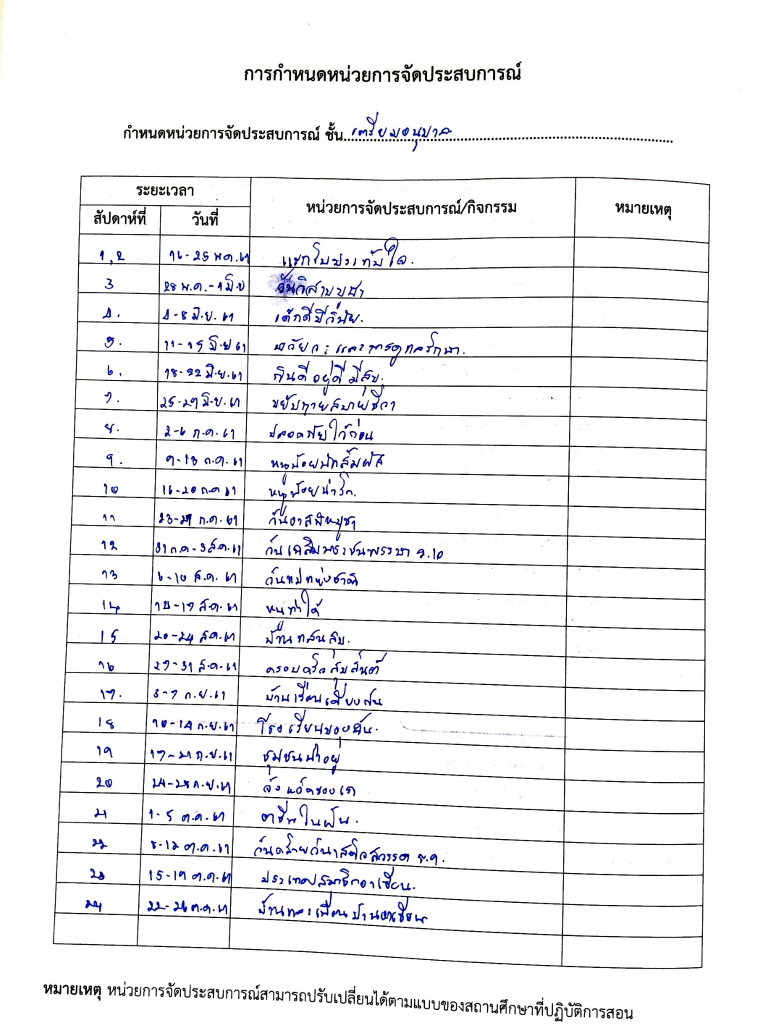 การกำหนดหน่วยการจัดประสบการณ์
กำหนดหน่วยการจัดประสบการณ์ ชั้น เตรียมอนุบาล
ระยะเวลา
หน่วยการจัดประสบการณ์/กิจกรรม
หมายเหตุ
สัปดาห์ที่ วันที่
1,2 16-25 พ.ค. 61 แรกรับประทับใจ.
3 28 พ.ค.-1 มิ.ย วันวิสาขบูชา
4. 4-8 มิ.ย. 61 เด็กดีมีวินัย.
5. 11-15 มิ.ย 61 อวัยวะและการดูแลรักษา.
6. 18-22 มิ.ย. 61 กินดี อยู่ดี มีสุข.
7. 25-29 มิ.ย. 61 ขยับกายสบายชีวา
8. 2-6 ก.ค. 61 ปลอดภัยไว้ก่อน
9. 9-13 ก.ค. 61 หนูน้อยนักสัมผัส
10 16-20 ก.ค 61 หนูน้อยน่ารัก.
11 23-27 ก.ค. 61 วันอาสาฬหบูชา
12 31 ก.ค-3 ส.ค. 61 วันเฉลิมพระชนพรรษา ร.10
13 6-10 ส.ค. 61 วันแม่แห่งชาติ
14 13-17 ส.ค. 61 หนูทำได้
15 20-24 ส.ค. 61 บ้านแสนสุข.
16 27-31 ส.ค. 61 ครอบครัวสุขสันต์
17. 3-7 ก.ย. 61 บ้านเรือนเคียงกัน
18 10-14 ก.ย. 61 โรงเรียนของฉัน.
19 17-21 ก.ย. 61 ชุมชนน่าอยู่
20 24-28 ก.ย. 61 จังหวัดของเรา
21 1-5 ต.ค. 61 อาชีพในฝัน.
22 8-12 ต.ค. 61 วันคล้ายวันสวรรคต ร.9.
23 15-19 ต.ค. 61 ประเทศสมาชิกอาเซียน.
24 22-26 ต.ค. 61 บ้านและเพื่อนบ้านอาเซียน
หมายเหตุ หน่วยการจัดประสบการณ์สามารถปรับเปลี่ยนได้ตามแบบของสถานศึกษาที่ปฏิบัติการสอน